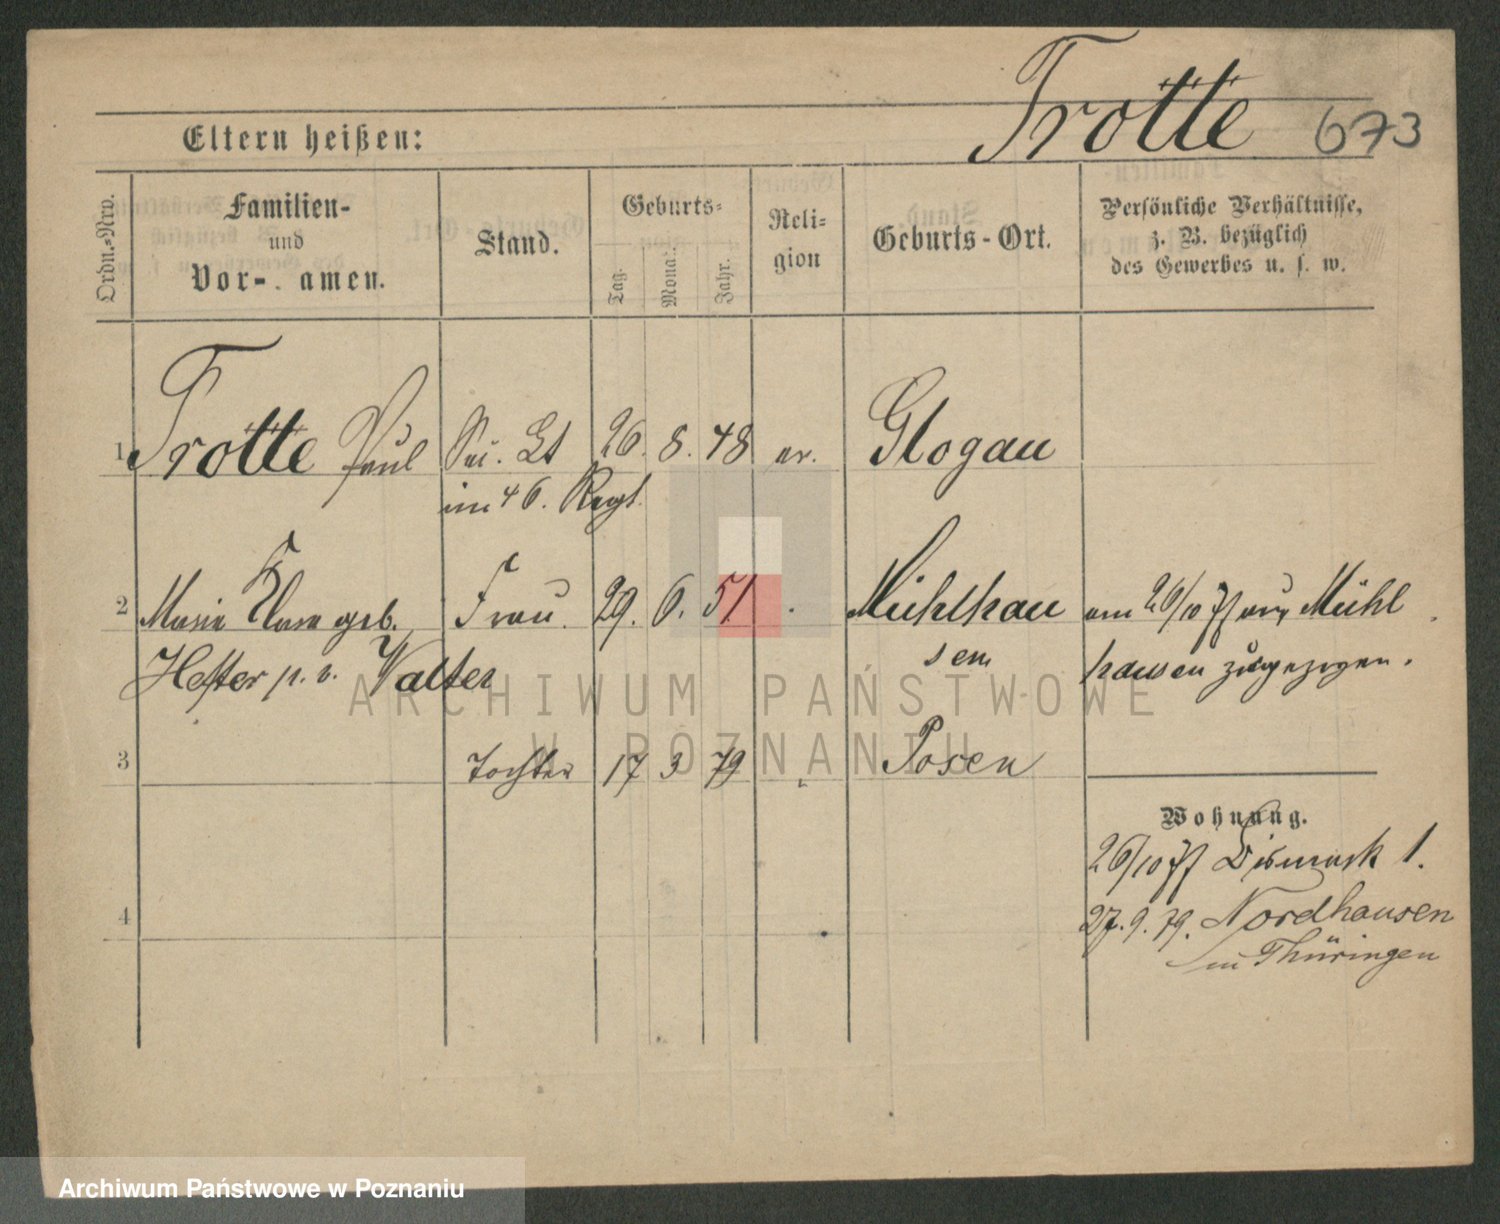 Trotte 673
Eltern heißen:
Ordn.-Nro.
Familien-
und
Vor- amen.
Stand.
Geburts-
Tag.
Mona
Jahr.
Reli-
gion
Geburts-Ort.
Persönliche Verhältnisse,
z. B. bezüglich
des Gewerbes u. s. w.
1 Trotte Paul Lt 26. 8. 48 ev. Glogau
im 46. Regt.
2 Maria Klara geb. Frau. 29. 6. 51 Mühlhau am 26/10 77 aus Mühl
Hefter p. v. Walter sen hausen zugezogen.
3 Tochter 17 3 79 Posen
Wohnung.
26/10 77 Bismark 1.
4
27. 9. 79. Nordhausen
in Thüringen
ARCHIWUM PAŃSTWOWE
W POZNANIU
Archiwum Państwowe w Poznaniu